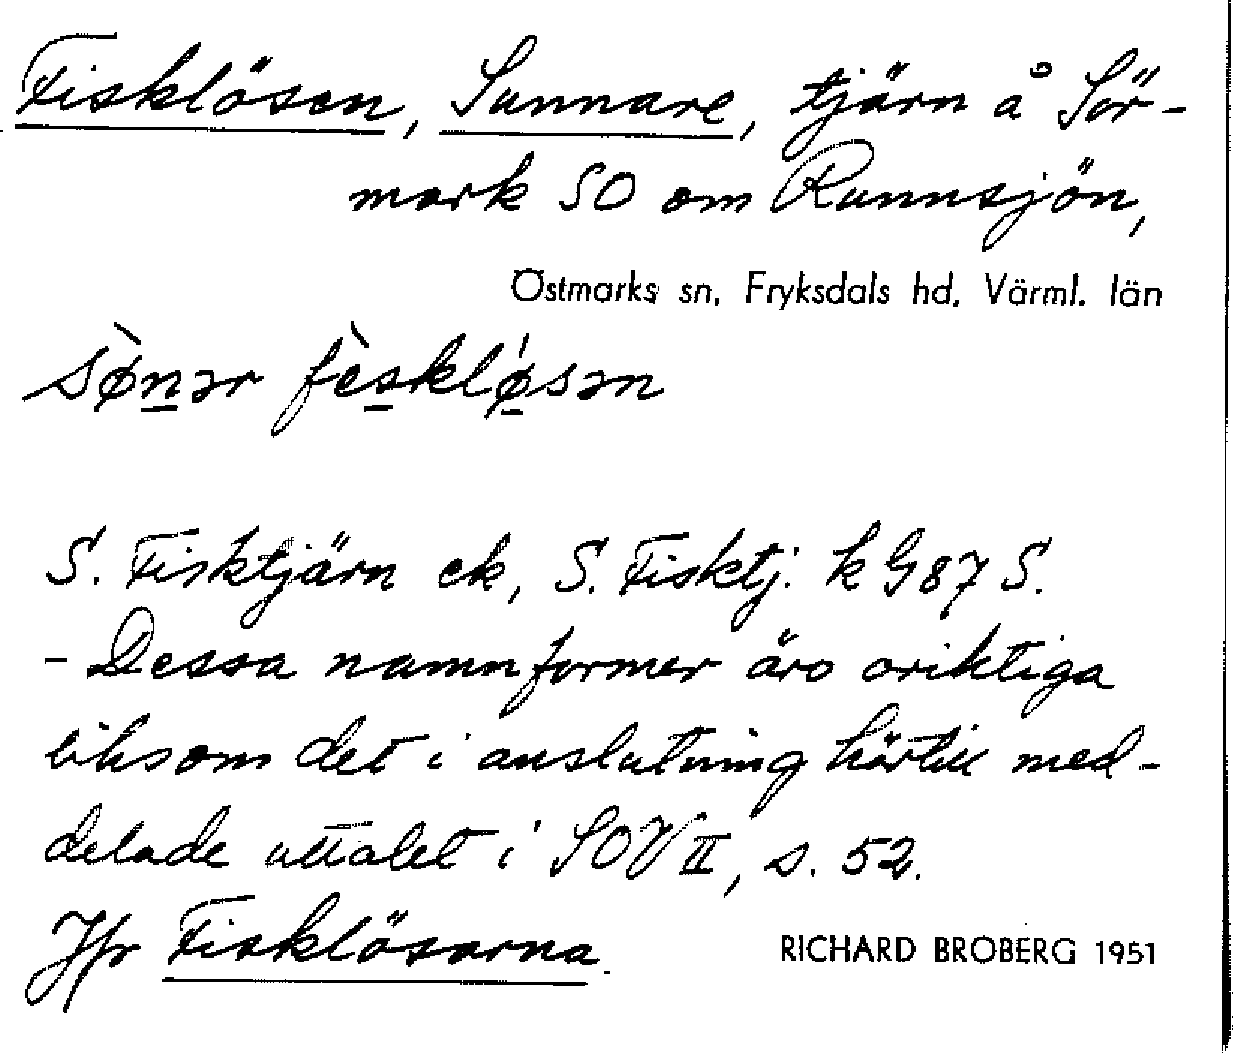 Fisklösen, Sunnare, tjärn å Sör-
mark SO om Runnsjön,
Östmarks sn, Fryksdals hd. Värml. län
sø̀nər fèskløsən
S. Fisktjärn ek, S. Fisktj. k G87 S.
- Dessa namnformer äro oriktiga
liksom det i anslutning härtill med-
delade uttalet i SOV II, s. 52.
Jfr Fisklösarna.
RICHARD BROBERG 1951